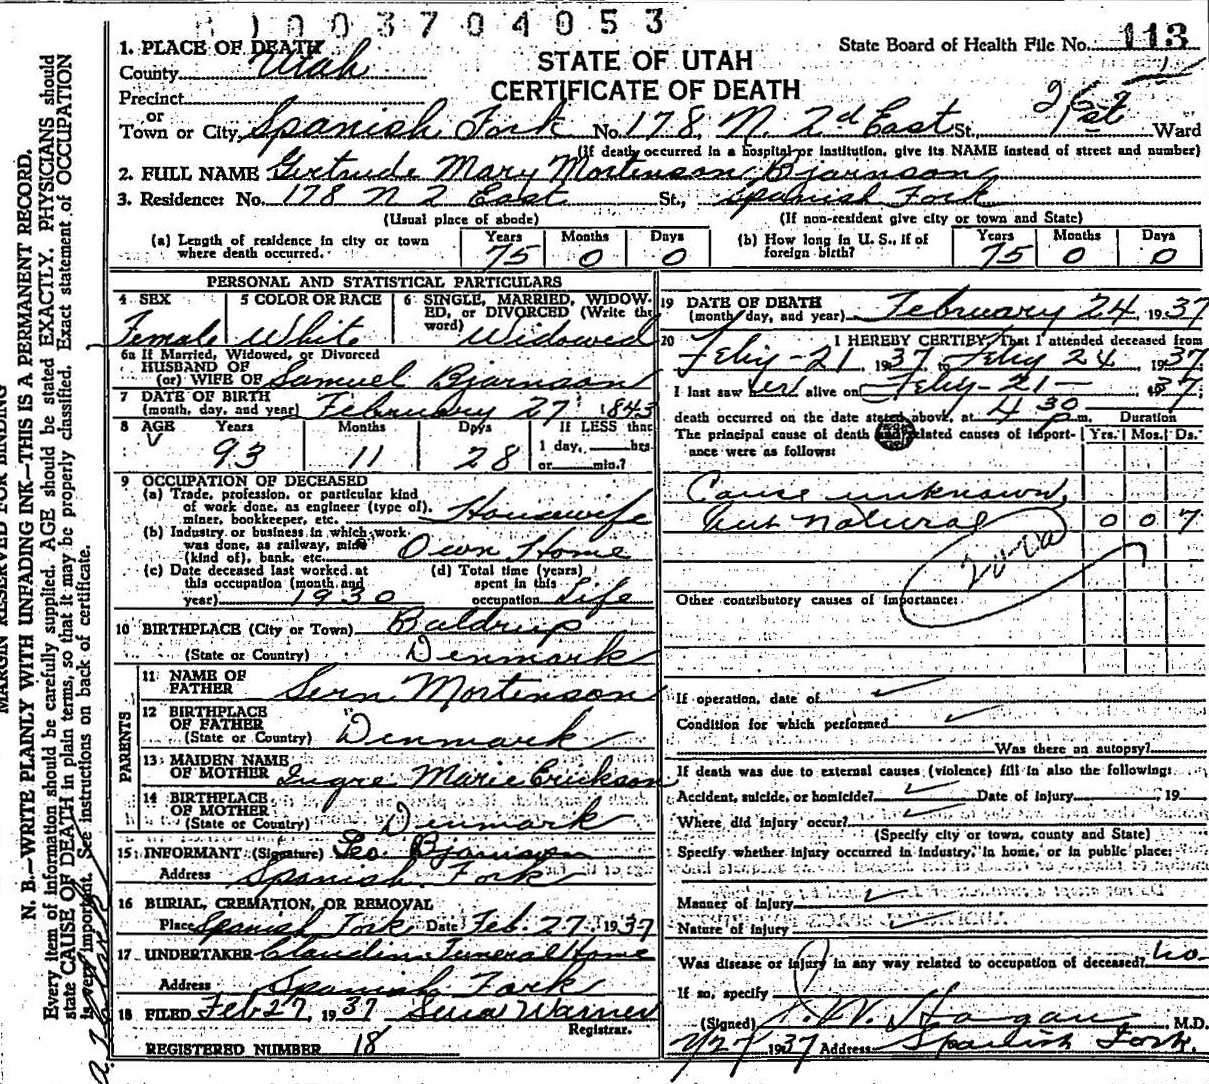 1003704053
1. PLACE OF DEATH
County Utah
STATE OF UTAH
CERTIFICATE OF DEATH
State Board of Health File No. 113
Precinct
or
Town or City Spanish Fork No. 178 N. 2d East St. Ward
(If death occurred in a hospital or institution, give its NAME instead of street and number)
2. FULL NAME Gertrude Mary Mortenson Bjarnson
3. Residence: No. 178 N 2 East St., Spanish Fork
(Usual place of abode) (If non-resident give city or town and State)
(a) Length of residence in city or town where death occurred. Years 75 Months 0 Days 0
(b) How long in U. S., if of foreign birth? Years 75 Months 0 Days 0
PERSONAL AND STATISTICAL PARTICULARS
4 SEX Female
5 COLOR OR RACE White
6 SINGLE, MARRIED, WIDOWED, or DIVORCED (Write the word) Widowed
6a If Married, Widowed, or Divorced
HUSBAND OF
(or) WIFE OF Samuel Bjarnson
7 DATE OF BIRTH
(month, day, and year) February 27 1843
8 AGE Years 93 Months 11 Days 28
If LESS than
1 day, hrs.
or min.?
9 OCCUPATION OF DECEASED
(a) Trade, profession, or particular kind
of work done, as engineer (type of),
miner, bookkeeper, etc. Housewife
(b) Industry or business in which work
was done, as railway, mine
(kind of), bank, etc. Own Home
(c) Date deceased last worked at
this occupation (month and
year) 1930
(d) Total time (years)
spent in this
occupation Life
10 BIRTHPLACE (City or Town) Baldrup
(State or Country) Denmark
PARENTS
11 NAME OF
FATHER Sern Mortenson
12 BIRTHPLACE
OF FATHER
(State or Country) Denmark
13 MAIDEN NAME
OF MOTHER Ingre Marie Erickson
14 BIRTHPLACE
OF MOTHER
(State or Country) Denmark
15 INFORMANT (Signature) Geo. Bjarnson
Address Spanish Fork
16 BURIAL, CREMATION, OR REMOVAL
Place Spanish Fork Date Feb. 27 1937
17 UNDERTAKER Claudin Funeral Home
Address Spanish Fork
18 FILED Feb 27, 1937 Warner
Registrar.
REGISTERED NUMBER 18
19 DATE OF DEATH
(month, day, and year) February 24 1937
20 I HEREBY CERTIFY, That I attended deceased from
Feby-21 1937 to Feby 24 1937
I last saw her alive on Feby-21- 1937
death occurred on the date stated above, at 4 30 p m. Duration
The principal cause of death and related causes of importance were as follows: Yrs. Mos. Ds.
Cause unknown,
but natural 0 0 7
200a
Other contributory causes of importance:
If operation, date of
Condition for which performed
Was there an autopsy?
If death was due to external causes (violence) fill in also the following:
Accident, suicide, or homicide? Date of injury , 19
Where did injury occur?
(Specify city or town, county and State)
Specify whether injury occurred in industry, in home, or in public place:
Manner of injury
Nature of injury
Was disease or injury in any way related to occupation of deceased? no
If so, specify
(Signed) W. Hagan, M.D.
2/27 1937 Address Spanish Fork.
MARGIN RESERVED FOR BINDING
N. B.—WRITE PLAINLY WITH UNFADING INK—THIS IS A PERMANENT RECORD.
Every item of information should be carefully supplied. AGE should be stated EXACTLY. PHYSICIANS should
state CAUSE OF DEATH in plain terms, so that it may be properly classified. Exact statement of OCCUPATION
is very important. See instructions on back of certificate.